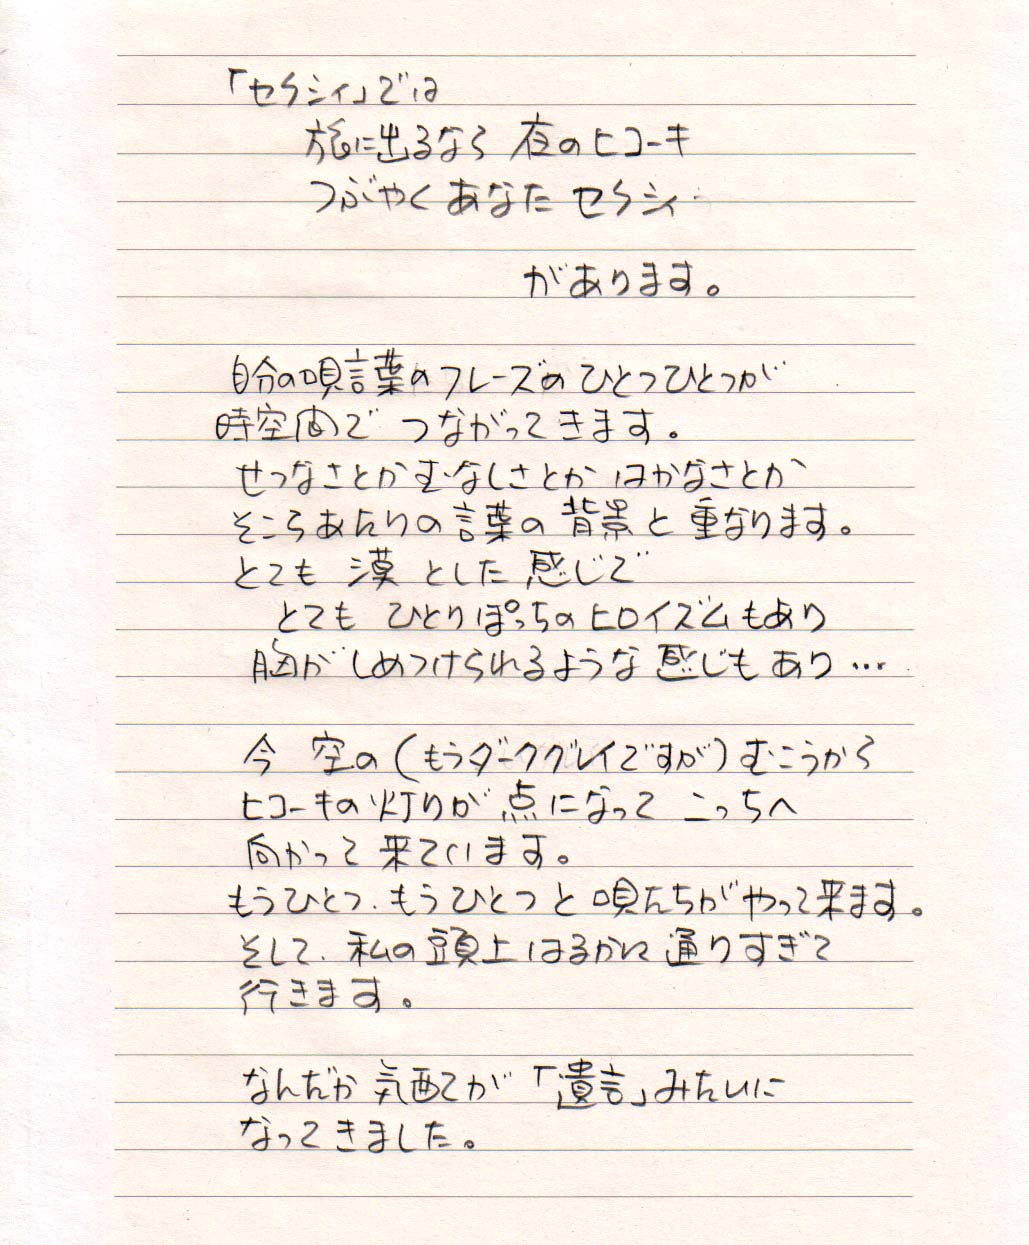 「セクシィ」では
旅に出るなら 夜のヒコーキ
つぶやく あなた セクシィ
があります。
自分の唄言葉のフレーズのひとつひとつが
時空間で つながってきます。
せつなさとか むなしさとか はかなさとか
そこらあたりの言葉の背景と重なります。
とても 漠とした感じで
とても ひとりぽっちのヒロイズムもあり
胸がしめつけられるような感じもあり…
今 空の(もうダークグレイですが)むこうから
ヒコーキの灯りが 点になって こっちへ
向かって来ています。
もうひとつ、もうひとつと 唄たちがやって来ます。
そして、私の頭上はるかに通りすぎて
行きます。
なんだか 気配が「遺言」みたいに
なってきました。